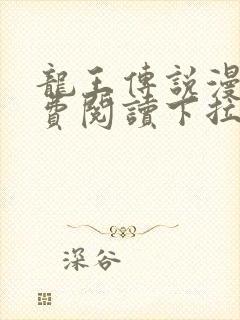 龍王傳說漫
費閱讀下拉
深谷